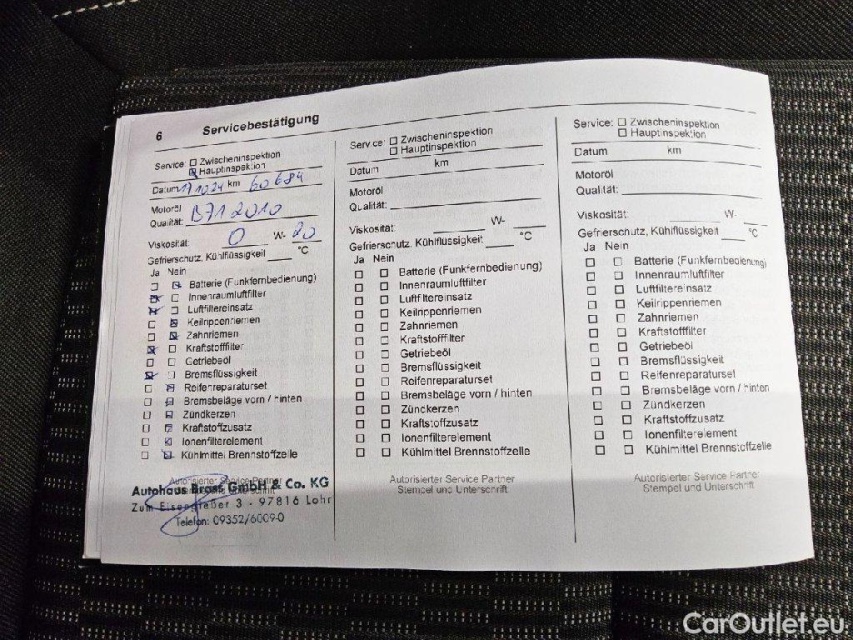 6 Servicebestätigung
Service: Zwischeninspektion
Hauptinspektion
Datum 171024 km 60684
Motoröl
Qualität: B712010
Viskosität: 0 W- 20
Gefrierschutz, Kühlflüssigkeit °C
Ja Nein
Batterie (Funkfernbedienung)
Innenraumluftfilter
Luftfiltereinsatz
Keilrippenriemen
Zahnriemen
Kraftstofffilter
Getriebeöl
Bremsflüssigkeit
Reifenreparaturset
Bremsbeläge vorn / hinten
Zündkerzen
Kraftstoffzusatz
Ionenfilterelement
Kühlmittel Brennstoffzelle
Autorisierter Service Partner
Autohaus Brost GmbH & Co. KG
Zum Eisengießer 3 - 97816 Lohr
Telefon: 09352/6009-0
Service: Zwischeninspektion
Hauptinspektion
Datum km
Motoröl
Qualität:
Viskosität: W-
Gefrierschutz, Kühlflüssigkeit °C
Ja Nein
Batterie (Funkfernbedienung)
Innenraumluftfilter
Luftfiltereinsatz
Keilrippenriemen
Zahnriemen
Kraftstofffilter
Getriebeöl
Bremsflüssigkeit
Reifenreparaturset
Bremsbeläge vorn / hinten
Zündkerzen
Kraftstoffzusatz
Ionenfilterelement
Kühlmittel Brennstoffzelle
Autorisierter Service Partner
Stempel und Unterschrift
Service: Zwischeninspektion
Hauptinspektion
Datum km
Motoröl
Qualität:
Viskosität: W-
Gefrierschutz, Kühlflüssigkeit °C
Ja Nein
Batterie (Funkfernbedienung)
Innenraumluftfilter
Luftfiltereinsatz
Keilrippenriemen
Zahnriemen
Kraftstofffilter
Getriebeöl
Bremsflüssigkeit
Reifenreparaturset
Bremsbeläge vorn / hinten
Zündkerzen
Kraftstoffzusatz
Ionenfilterelement
Kühlmittel Brennstoffzelle
Autorisierter Service Partner
Stempel und Unterschrift
CarOutlet.eu